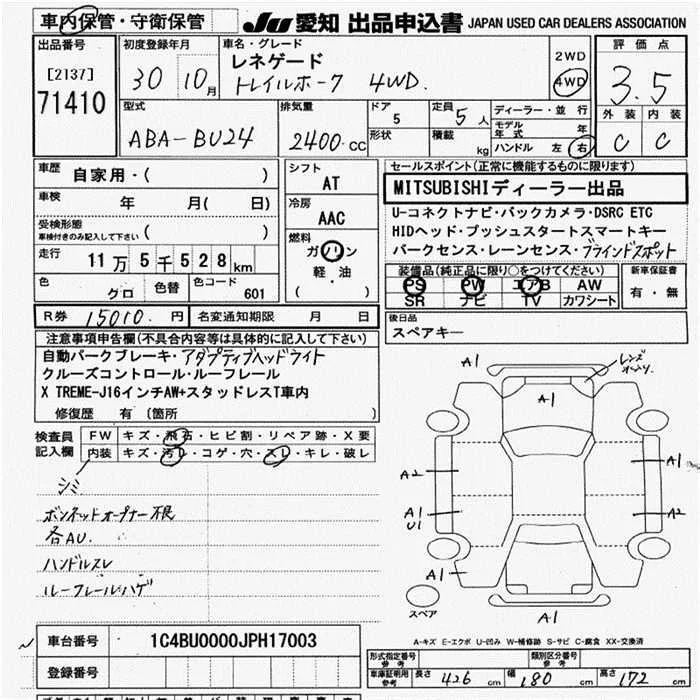 車内保管・守衛保管
JU 愛知 出品申込書 JAPAN USED CAR DEALERS ASSOCIATION
出品番号
[2137]
71410
初度登録年月
30 10月
車名・グレード
レネゲード
トレイルホーク 4WD.
2WD
4WD
評価点
3.5
外装 内装
C C
型式
ABA-BU24
排気量
2400 CC
ドア
5
形状
定員
5人
積載
kg
ディーラー・並行
モデル年式 年
ハンドル 左 右
車歴
自家用・( )
車検
年 月( 日)
受検形態
車検付きのみ記入して下さい ( )
走行
11万5千528km
色
グロ
色替
色コード
601
シフト
AT
冷房
AAC
燃料
ガソリン
軽・油
( )
セールスポイント(正常に機能するものに限ります)
MITSUBISHIディーラー出品
U-コネクトナビ・バックカメラ・DSRC ETC
HIDヘッド・プッシュスタートスマートキー
パークセンス・レーンセンス・ブラインドスポット
装備品(純正品に限り○をつけてください)
PS PW エアB AW
SR ナビ TV カワシート
新車保証書
有・無
R券 15010.円 名変通知期限 月 日
後日品
スペアキー
注意事項申告欄(不具合内容等は具体的に記入して下さい)
自動パークブレーキ・アダプティブヘッドライト
クルーズコントロール・ルーフレール
X TREME-J16インチAW+スタッドレスT車内
修復歴 有 〔箇所 〕
検査員記入欄
FW キズ・飛石・ヒビ割・リペア跡・X要
内装 キズ・汚レ・コゲ・穴・スレ・キレ・破レ
シミ
ボンネットオープナー不良
各AU.
ハンドルスレ
ルーフレールハゲ
A1
レンズ
A1
A2
A1
A1
U1
A2
A1
スペア
A1
A-キズ E-エクボ U-凹み W-補修跡 S-サビ C-腐食 XX-交換済
車台番号 1C4BU0000JPH17003
登録番号
形式指定番号
参考
類別区分番号
参考
車庫証明用
参考
長さ 426 cm 幅 180 cm 高さ 172 cm